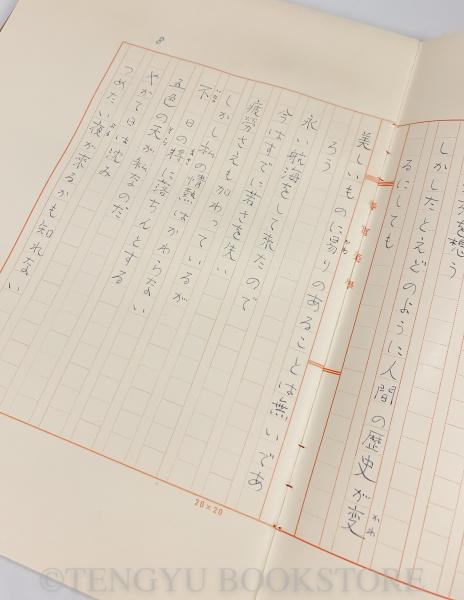 を想う
しかしたとえどのように人間の歴史が変
かわ
るにしても
美しいものに易りのあることは無いであ
かわ
ろう
永い航海をして来たので
今はすでに若さを失い
疲労さえも加わっているが
しかし私の情熱はかわらない
日の将に落ちんとする
五色の天が私なのだ
やがて日は沈み
つめたい夜が来るかも知れない
8
20×20
©TENGYU BOOKSTORE